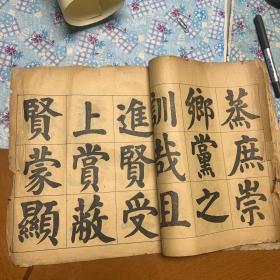 蒸庶崇
鄉黨之
訓哉且
進賢受
上賞蔽
賢蒙顯